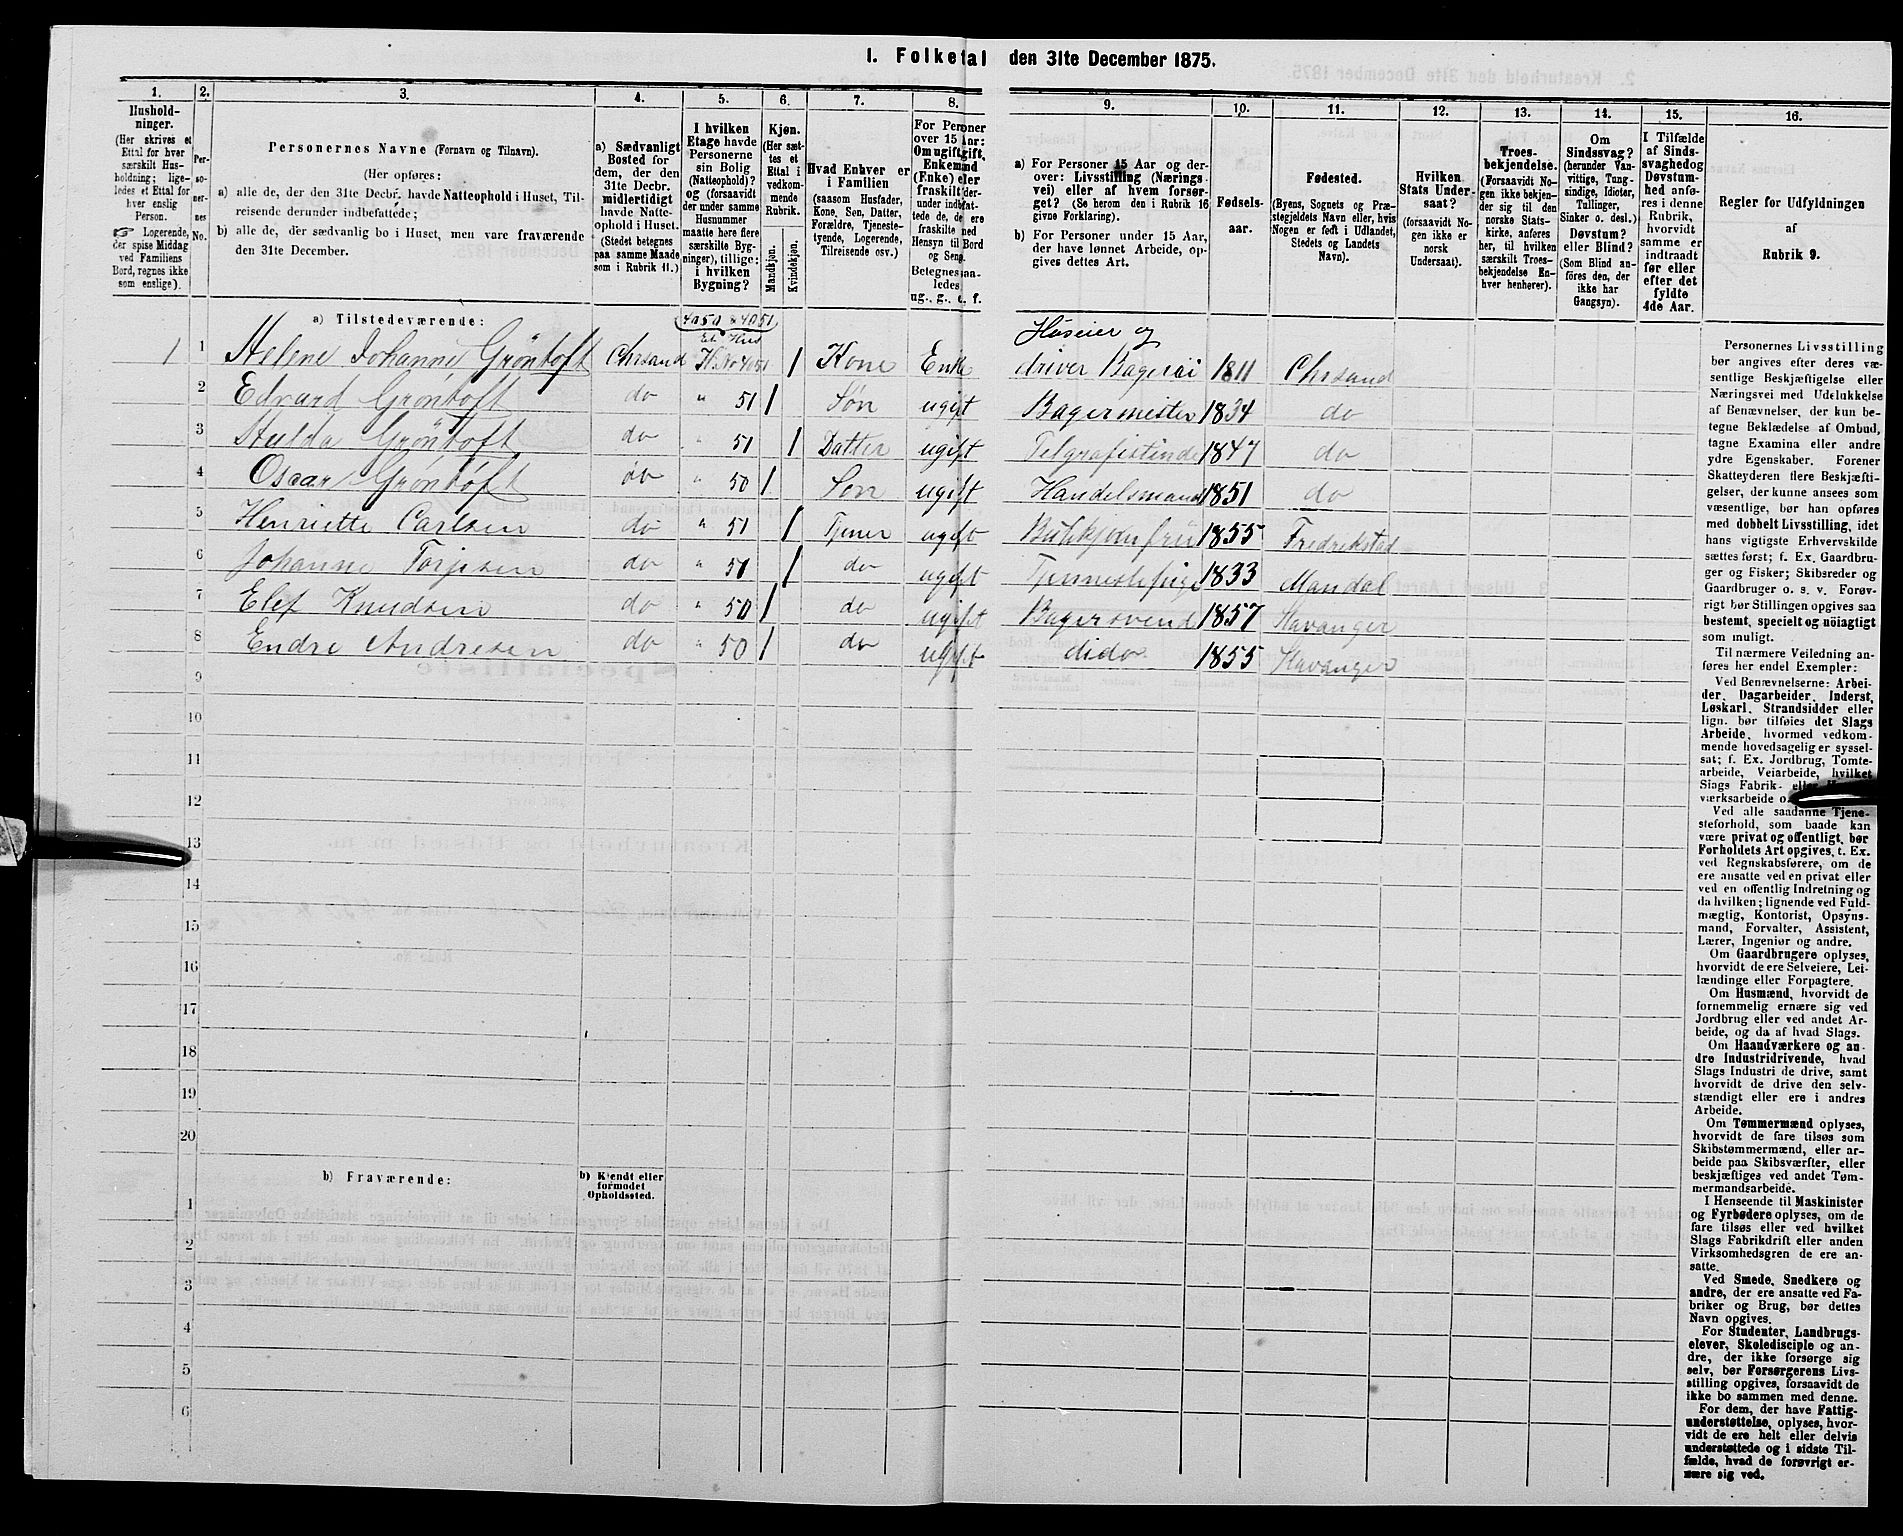 1. Folketal den 31te December 1875.
1. 2. 3. 4. 5. 6. 7. 8. 9. 10. 11. 12. 13. 14. 15. 16.
Hushold-
ninger.
(Her skrives et
Ettal for hver
særskilt Hus-
holdning; lige-
ledes et Ettal for
hver enslig
Person.
☞ Logerende,
der spise Middag
ved Familiens
Bord, regnes ikke
som enslige).
Per-
so-
ner-
nes
No.
Personernes Navne (Fornavn og Tilnavn).
(Her opføres:
a) alle de, der den 31te Decbr. havde Natteophold i Huset, Til-
reisende derunder indbefattede;
b) alle de, der sædvanlig bo i Huset, men vare fraværende
den 31te December.
a) Sædvanligt
Bosted for
dem, der den
31te Decbr.
midlertidigt
havde Natte-
ophold i Huset.
(Stedet betegnes
paa samme Maade
som i Rubrik 11.)
I hvilken
Etage havde
Personerne
sin Bolig
(Natteophold)?
og (forsaavidt
der under samme
Husnummer
maatte høre flere
særskilte Byg-
ninger), tillige:
i hvilken
Bygning?
Kjøn.
(Her sæt-
tes et
Ettal i
vedkom-
mende
Rubrik.
Mandkjøn.
Kvindekjøn.
Hvad Enhver er
i Familien
(saasom Husfader,
Kone, Søn, Datter,
Forældre, Tjeneste-
tyende, Logerende,
Tilreisende osv.)
For Personer
over 15 Aar:
Om ugift, gift,
Enkemand
(Enke) eller
fraskilt
Betegnes saa-
ledes
ug., g., e. f.
a) For Personer 15 Aar og der-
over: Livsstilling (Nærings-
vei) eller af hvem forsør-
get? (Se herom den i Rubrik 16
givne Forklaring).
b) For Personer under 15 Aar,
der have lønnet Arbeide, op-
gives dettes Art.
Fødsels-
aar.
Fødested.
(Byens, Sognets og Præ-
stegjeldets Navn eller, hvis
Nogen er født i Udlandet,
Stedets og Landets
Navn).
Hvilken
Stats Under-
saat?
(forsaavidt No-
gen ikke er
norsk
Undersaat).
Troes-
bekjendelse.
(Forsaavidt No-
gen ikke bekjen-
der sig til den
norske Stats-
kirke, anføres
her, til hvilken
særskilt Troes-
bekjendelse En-
hver henhører).
Om
Sindssvag?
(herunder Van-
vittige, Tung-
sindige, Idioter,
Tullinger,
Sinker o. desl.)
Døvstum?
eller Blind?
(Som Blind an-
føres den, der
ikke har
Gangsyn).
I Tilfælde
af Sinds-
svaghed og
Døvstum-
hed anfø-
res i denne
Rubrik,
hvorvidt
samme er
indtraadt
før eller
efter det
fyldte
4de Aar.
Regler for Udfyldningen
af
Rubrik 9.
a) Tilstedeværende:
4050 & 4051
Et Hus
Huseier og
1 1 Helene Johanne Gröntoft Chrsand H. No 4051 1 Kone Enke driver Bageri 1811 Chrsand
2 Edvard Gröntoft do " 51 1 Søn ugift Bagermester 1834 do
3 Hulda Gröntoft do " 51 1 Datter ugift Telgrafistinde 1847 do
4 Oscar Gröntoft do " 50 1 Søn ugift Handelsmand 1851 do
5 Henriette Carlsen do " 51 1 Tjener ugift 1855 Fredrikstad
6 Johanne Torjesen do " 51 1 do ugift Tjennestepige 1833 Mandal
7 Elef Knudsen do " 50 1 do ugift Bagersvend 1857 Stavanger
8 Endre Andresen do " 50 1 do ugift dido 1855 Stavanger
9
10
11
12
13
14
15
16
17
18
19
20
b) Fraværende:
b) Kjendt eller
formodet
Opholdssted.
1
2
3
4
5
6
Personernes Livsstilling
bør angives efter deres væ-
sentlige Beskjæftigelse eller
Næringsvei med Udelukkelse
af Benævnelser, der kun be-
tegne Beklædelse af Ombud,
tagne Examina eller andre
ydre Egenskaber. Forener
Skatteyderen flere Beskjæfti-
gelser, der kunne ansees som
væsentlige, bør han opføres
med dobbelt Livsstilling, idet
hans vigtigste Erhvervskilde
sættes først; f. Ex. Gaardbru-
ger og Fisker; Skibsreder og
Gaardbruger o. s. v. Forøv-
rigt bør Stillingen opgives saa
bestemt, specielt og nöiagtigt
som muligt.
Til nærmere Veiledning an-
føres her endel Exempler:
Ved Benævnelserne: Arbei-
der, Dagarbeider, Inderst,
Løskarl, Strandsidder eller
lign. bør tilføies det Slags
Arbeide, hvormed vedkom-
mende hovedsagelig er syssel-
sat; f. Ex. Jordbrug, Tomte-
arbeide, Veiarbeide, hvilket
Slags Fabrik-
værksarbeide
Ved alle saadanne Tjene-
steforhold, som baade kan
være privat og offentligt, bør
Forholdets Art opgives, t. Ex.
ved Regnskabsførere, om de
ere ansatte ved en privat eller
ved en offentlig Indretning og
da hvilken; lignende ved Fuld-
mægtig, Kontorist, Opsyns-
mand, Forvalter, Assistent,
Lærer, Ingeniør og andre.
Om Gaardbrugere oplyses,
hvorvidt de ere Selveiere, Lei-
lændinge eller Forpagtere.
Om Husmænd, hvorvidt de
fornemmelig ernære sig ved
Jordbrug eller ved andet Ar-
beide, og da af hvad Slags.
Om Haandværkere og an-
dre Industridrivende, hvad
Slags Industri de drive, samt
hvorvidt de drive den selv-
stændigt eller ere i andres
Arbeide.
Om Tømmermænd oplyses,
hvorvidt de fare tilsøs som
Skibstømmermænd, eller ar-
beide paa Skibsværfter, eller
beskjæftiges ved andet Tøm-
mermandsarbeide.
I Henseende til Maskinister
og Fyrbødere oplyses, om de
fare tilsøs eller ved hvilket
Slags Fabrikdrift eller anden
Virksomhedsgren de ere an-
satte.
Ved Smede, Snedkere og
andre, der ere ansatte ved Fa-
briker og Brug, bør dettes
Navn opgives.
For Studenter, Landbrugs-
elever, Skoledisciple og an-
dre, der ikke forsørge sig
selv, bør Forsørgerens Livs-
stilling opgives, forsaavidt de
ikke bo sammen med denne.
For dem, der have Fattig-
understøttelse, oplyses, hvor-
vidt de ere helt eller delvis
understøttede og i sidste Til-
fælde, hvad de forøvrigt er-
nære sig ved.